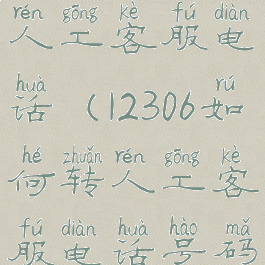 rén gōng kè fú diàn
人工客服电
huà rú
话（12306如
hé zhuǎn rén gōng kè
何转人工客
fú diàn huà hào mǎ
服电话号码